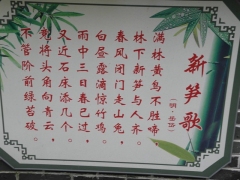 新笋歌
（明·岳岱）
满林黄鸟不胜啼，
林下新笋与人齐。
春风闭门走山兔，
白昼露滴惊竹鸡。
雨中三日春已过，
又近石床添几个。
竟将头角向青云，
不管阶前绿苔破。